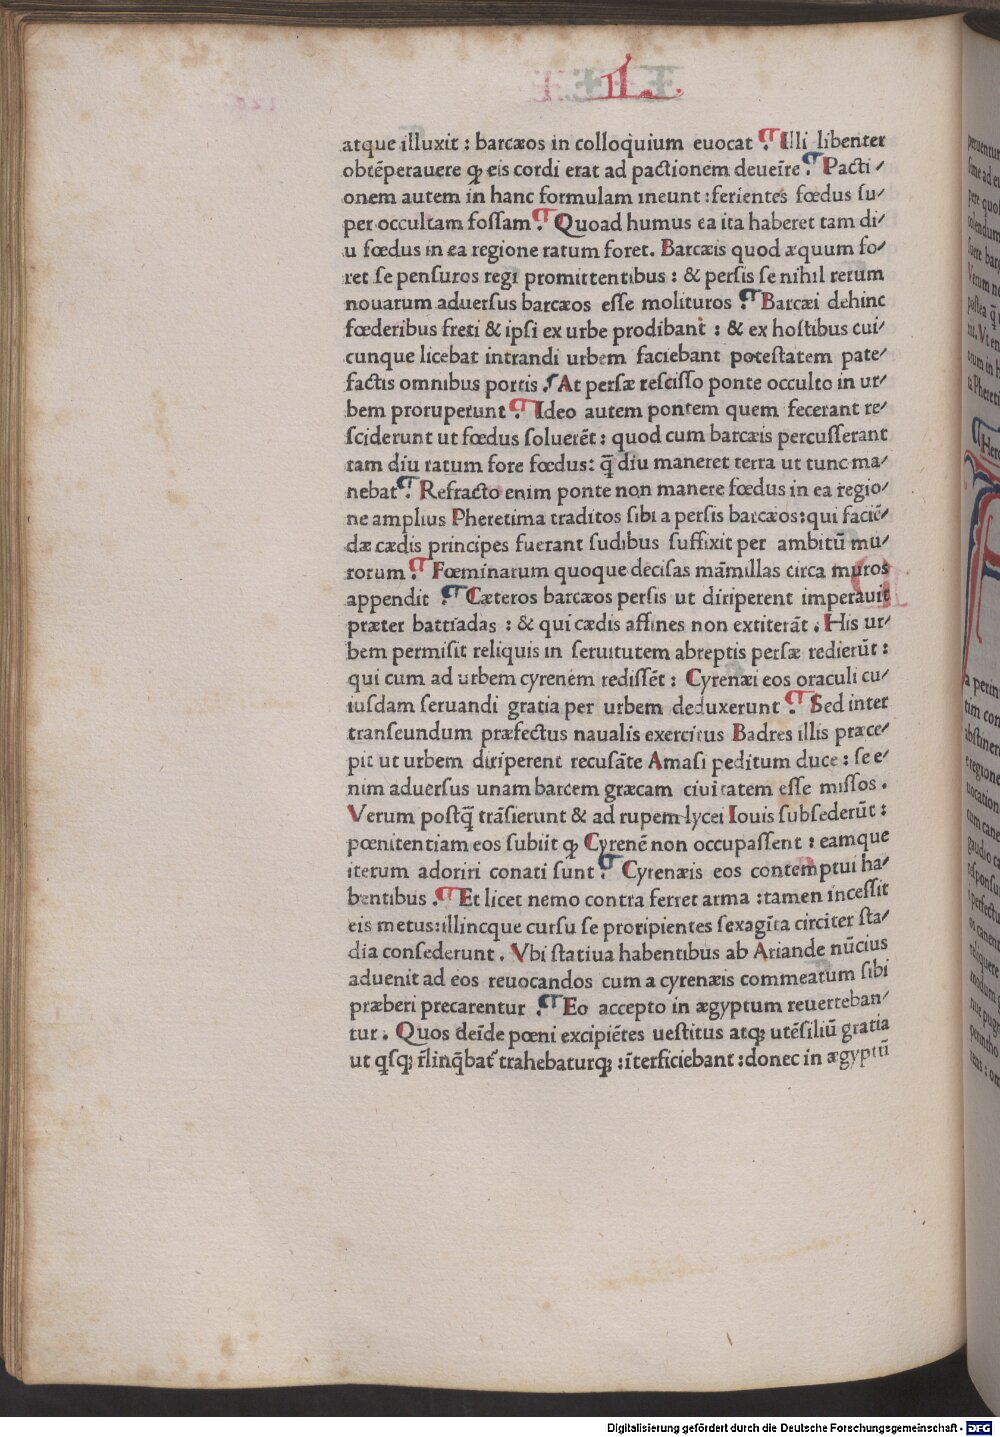 L.
atque illuxit : barcæos in colloquium euocat ¶. Illi libenter
obtēperauere ꝙ eis cordi erat ad pactionem deueīre ¶. Pacti/
onem autem in hanc formulam ineunt : ferientes fœdus su/
per occultam fossam ¶. Quoad humus ea ita haberet tam di/
u fœdus in ea regione ratum foret. Barcæis quod æquum fo/
ret se pensuros regi promittentibus : & persis se nihil rerum
nouarum aduersus barcæos esse molituros ¶. Barcæi dehinc
fœderibus freti & ipsi ex urbe prodibant : & ex hostibus cui/
cunque licebat intrandi urbem faciebant potestatem pate/
factis omnibus portis . At persæ rescisso ponte occulto in ur/
bem proruperunt ¶. Ideo autem pontem quem fecerant re/
sciderunt ut fœdus soluerēt : quod cum barcæis percusserant
tam diu ratum fore fœdus : q̄ diu maneret terra ut tunc ma/
nebat ¶. Refracto enim ponte non manere fœdus in ea regio/
ne amplius Pheretima traditos sibi a persis barcæos : qui faciē/
dæ cædis principes fuerant sudibus suffixit per ambitū mu/
rorum ¶. Fœminarum quoque decisas mām̄illas circa muros
appendit ¶. Cæteros barcæos persis ut diriperent imperauit
præter battiadas : & qui cædis affines non extiterāt . His ur/
bem permisit reliquis in seruitutem abreptis persæ redierūt :
qui cum ad urbem cyrenem redissēt : Cyrenæi eos oraculi cu/
iusdam seruandi gratia per urbem deduxerunt ¶. Sed inter
transeundum præfectus naualis exercitus Badres illis præce/
pit ut urbem diriperent recusāte Amasi peditum duce : se e/
nim aduersus unam barcem græcam ciuitatem esse missos .
Verum postq̄ trāsierunt & ad rupem lycei Iouis subsederūt :
pœnitentiam eos subiit ꝙ Cyrenē non occupassent : eamque
iterum adoriri conati sunt ¶. Cyrenæis eos contemptui ha/
bentibus . ¶ Et licet nemo contra ferret arma : tamen incessit
eis metus : illincque cursu se proripientes sexagīta circiter sta/
dia consederunt . Vbi statiua habentibus ab Ariande nūcius
aduenit ad eos reuocandos cum a cyrenæis commeatum sibi
præberi precarentur ¶. Eo accepto in ægyptum reuerteban/
tur . Quos deīde pœni excipiētes uestitus atq; utēsiliū gratia
ut qsq; rl̄inq̄bat' trahebaturq; : īterficiebant : donec in ægyptū
Digitalisierung gefördert durch die Deutsche Forschungsgemeinschaft - DFG